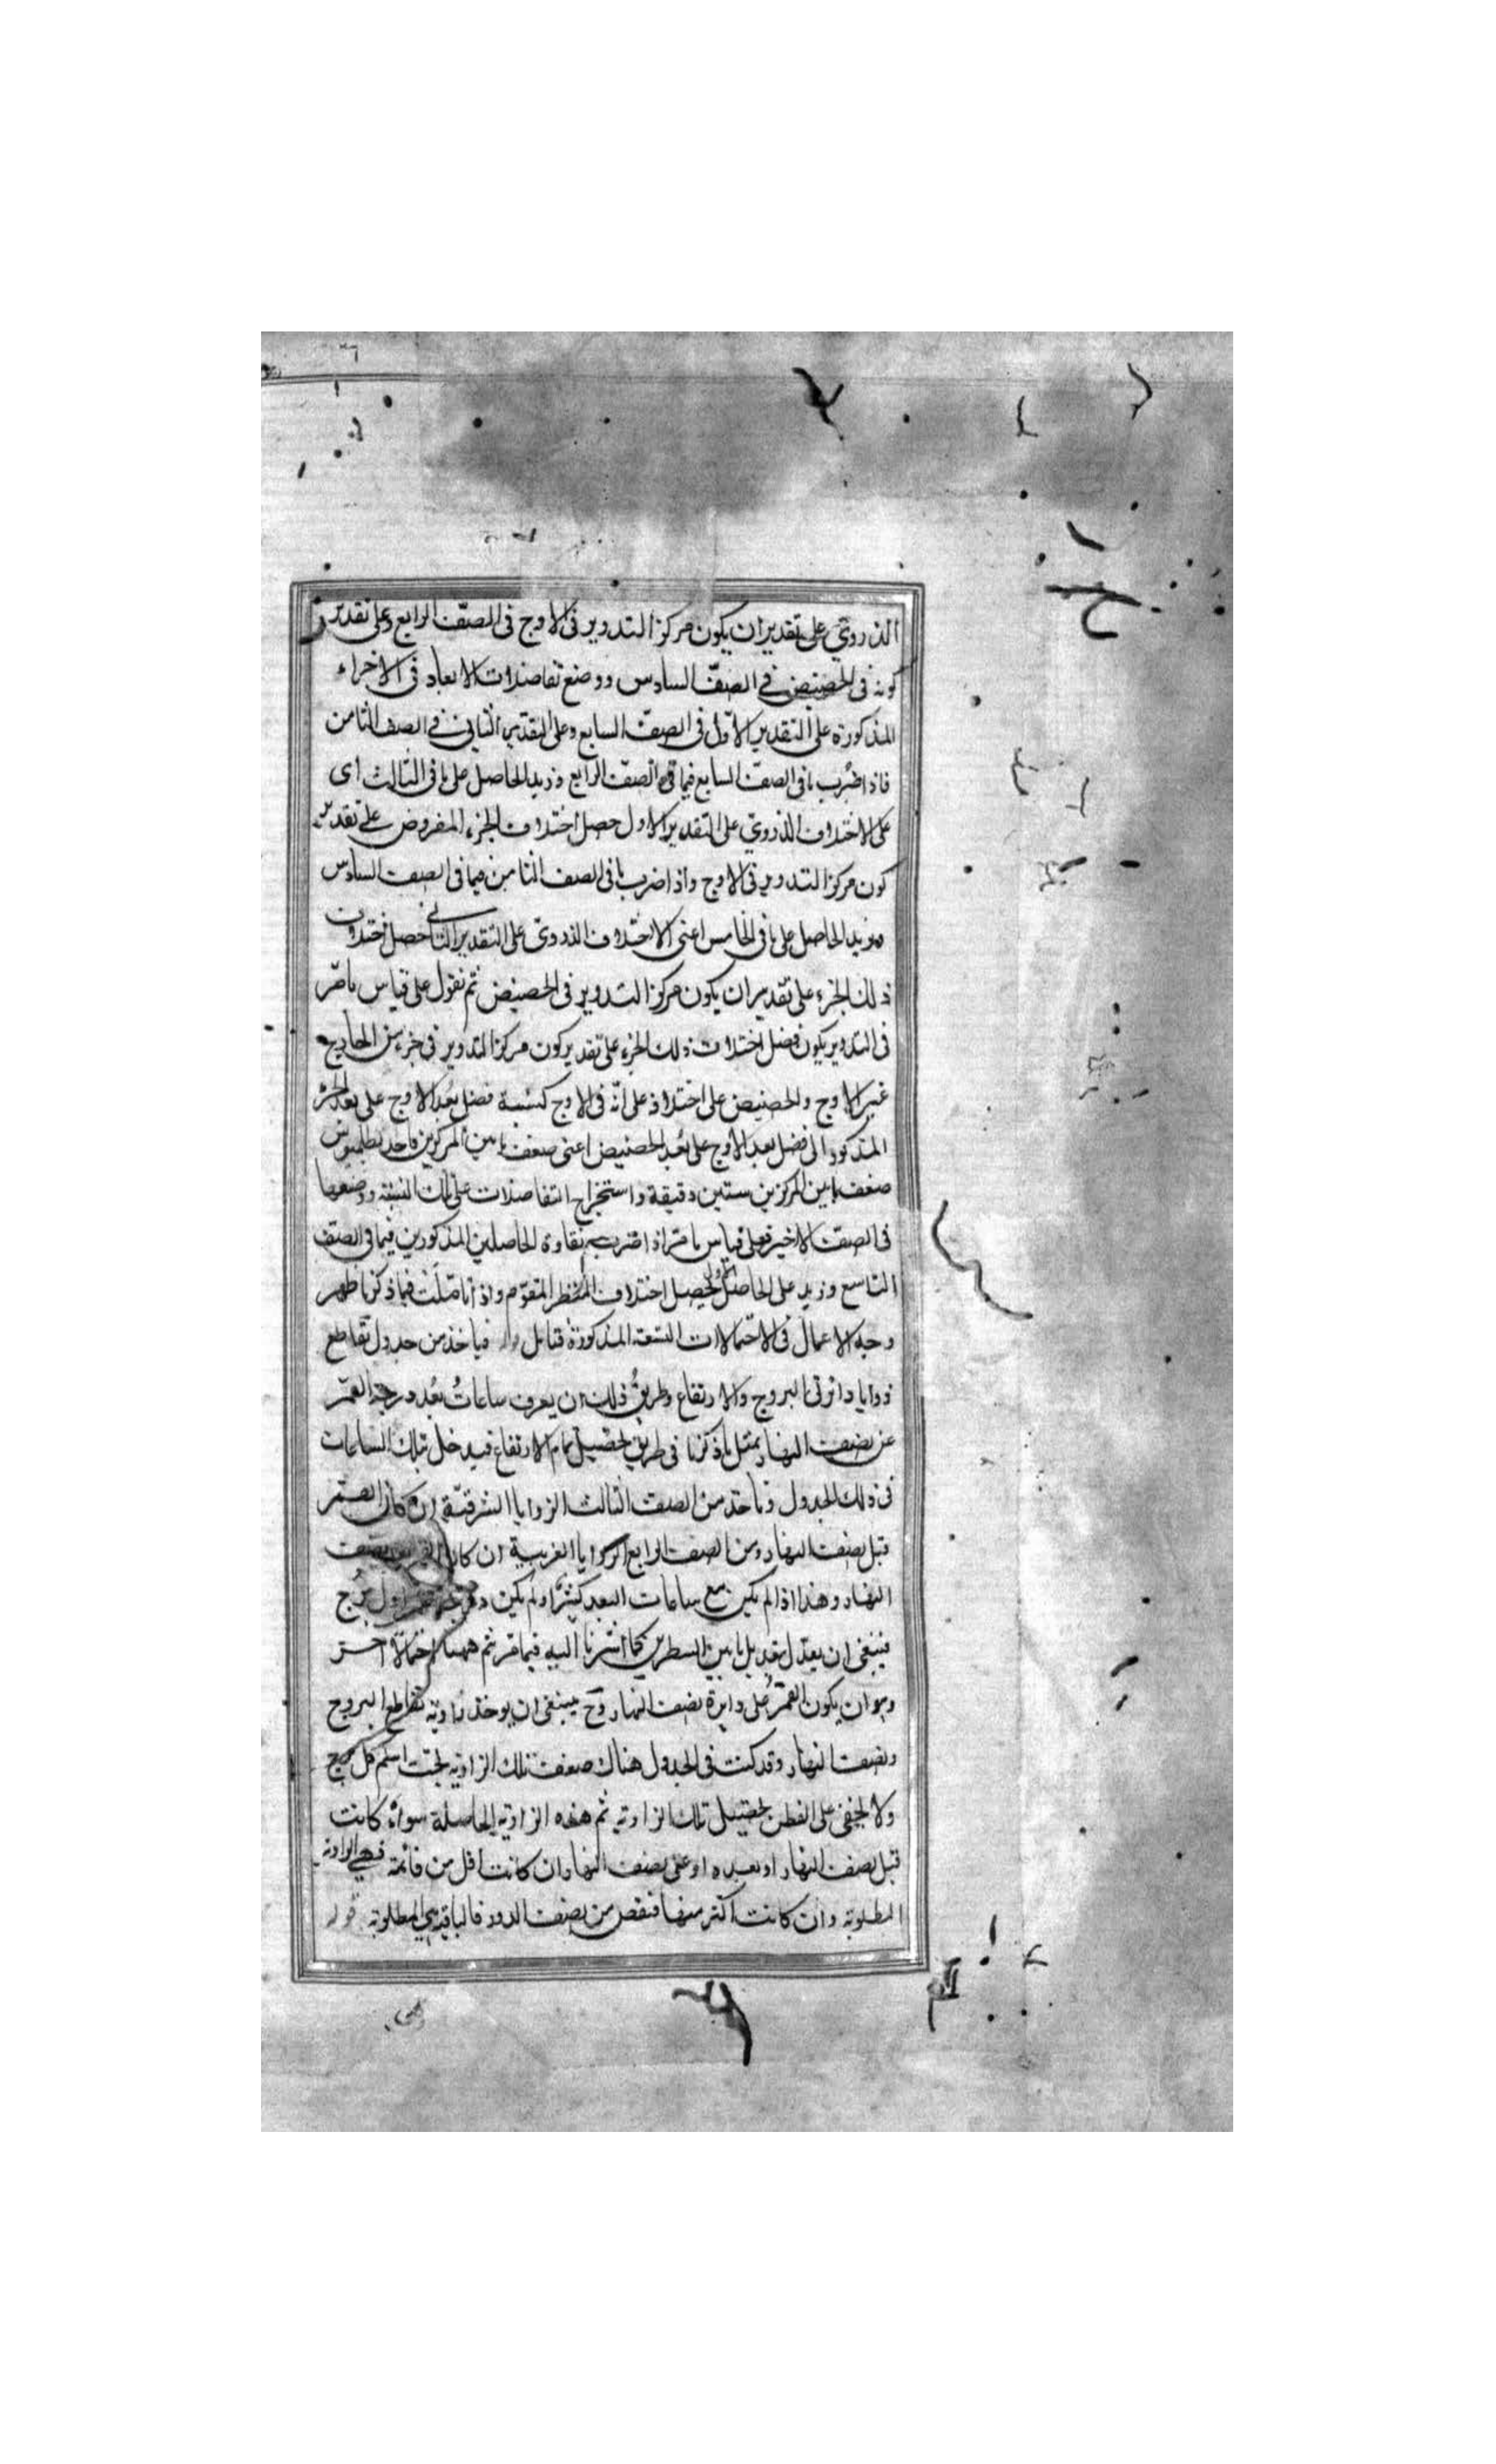 الذروي على تقدير ان يكون مركز التدوير فى الاوج فى الصف الرابع وعلى تقدير
كونه فى الحضيض فى الصف السادس ووضع تفاضلات الابعاد فى الاجزاء
المذكورة على التقدير الاول فى الصف السابع وعلى التقدير الثانى فى الصف الثامن
فاذا ضُرب ما فى الصف السابع فيما فى الصف الرابع وزيد الحاصل على ما فى الثالث اى
على الاختلاف الذروي على التقدير الاول حصل اختلاف الجزء المفروض على تقدير
كون مركز التدوير فى الاوج واذا ضرب ما فى الصف الثامن فيما فى الصف السادس
وزيد الحاصل على ما فى الخامس اعنى الاختلاف الذروى على التقدير الثانى حصل اختلاف
ذلك الجزء على تقدير ان يكون مركز التدوير فى الحضيض ثم نقول على قياس ما مرّ
فى التدوير يكون فضل اختلاف ذلك الجزء على تقدير كون مركز التدوير فى جزء من الخارج
غير الاوج والحضيض على اختلافه على انّه فى الاوج كنسبة فضل بُعد الاوج على بعد الجزء
المذكور الى فضل بعد الاوج على بُعد الحضيض اعنى ضعف ما بين المركزين فاخذ بطلميوس
ضعف ما بين المركزين ستين دقيقة واستخراج التفاضلات على تلك النسبة ووضعها
فى الصف الاخير فعلى قياس ما مرّ اذا ضرب تفاوة الحاصلين المذكورين فيما فى الصف
التاسع وزيد على الحاصل الاول يحصل اختلاف المنظر المقوّم واذا تاملت فيما ذكرنا ظهر
وجه الاعمال فى الاحتمالات التسعة المذكورة فتأمل فياخذ من جدول تقاطع
زوايا دائرتى البروج والارتفاع وطريقُ ذلك ان يعرف ساعاتُ بُعد درجة القمر
عن نصف النهار بمثل ما ذكرنا فى طريق تحصيل تمام الارتفاع فيدخل بتلك الساعات
فى ذلك الجدول وناخذ من الصف الثالث الزوايا الشرقيّة ان كان القمر
قبل نصف النهار ومن الصف الرابع الزوايا الغربية ان كان نصف
النهار وهذا اذا لم يكن مع ساعات البعد كسرٌ ولم يكن اول برج
فينبغى ان يعدل بتعديل ما بين السطرين كما اشرنا اليه فيما مر ثم ههنا احتمالٌ آخر
وهو ان يكون القمرُ على دايرة نصف النهار وح فينبغى ان يوخذ زاوية تقاطع البروج
ونصف النهار وقد كتبت فى الجدول هناك ضعف تلك الزاوية تحت اسم كل برج
ولا يخفى على الفطن تحصيل تلك الزاوية ثم هذه الزاوية الحاصلة سواءٌ كانت
قبل نصف النهار او بعده او على نصف النهار ان كانت اقل من قائمة فهى الزاوية
المطلوبة وان كانت اكثر منها فنقص من نصف الدور فالباقية هى المطلوبة قوله